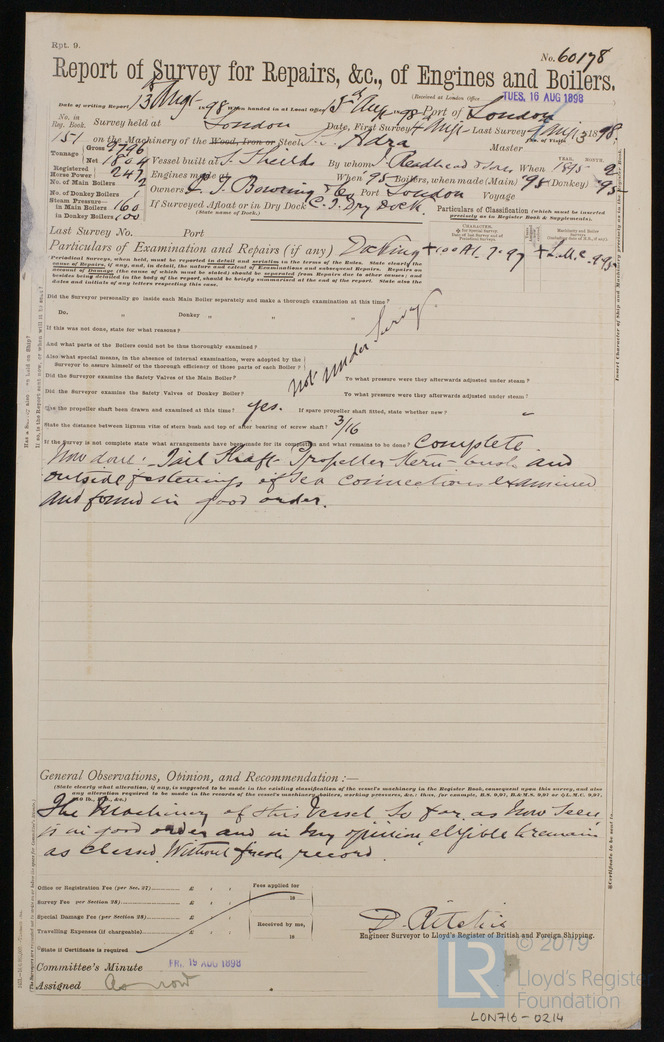 Rpt. 9.
No. 60178
Report of Survey for Repairs, &c., of Engines and Boilers.
(Received at London Office TUES. 16 AUG 1898
Date of writing Report 13th Augt 1898 When handed in at Local Office 15th Aug 1898 Port of London
No. in Reg. Book. Survey held at London Date, First Survey 4 Augt Last Survey 9 Aug 1898
151 on the Machinery of the Wood, Iron or Steel S.S. Adra Master
Tonnage Gross 2796
Net 1804 Vessel built at S. Shields By whom J. Readhead & Sons When 1895 - 2
Registered Horse Power 247 Engines made at When 95 Boilers, when made (Main) 95 (Donkey) 95
No. of Main Boilers 2
No. of Donkey Boilers 1 Owners C. T. Bowring & Co Port London Voyage
Steam Pressure in Main Boilers 160 If Surveyed Afloat or in Dry Dock C. T. Dry Dock.
in Donkey Boilers 100 (State name of Dock.)
Particulars of Classification (which must be inserted precisely as in Register Book & Supplements).
Last Survey No. Port
Particulars of Examination and Repairs (if any) Docking +100A1. 7.97 +L.M.C. 9.95
Periodical Surveys, when held, must be reported in detail and seriatim in the terms of the Rules. State clearly the
cause of Repairs, if any, and, in detail, the nature and extent of Examinations and subsequent Repairs. Repairs on
account of Damage (the cause of which must be stated) should be separated from Repairs due to other causes; and
besides being detailed in the body of the report, should be briefly summarised at the end of the report. State also the
dates and initials of any letters respecting this case.
Did the Surveyor personally go inside each Main Boiler separately and make a thorough examination at this time?
Do. " Donkey " " "
If this was not done, state for what reasons?
And what parts of the Boilers could not be thus thoroughly examined?
Also what special means, in the absence of internal examination, were adopted by the
Surveyor to assure himself of the thorough efficiency of those parts of each Boiler?
not under Survey.
Did the Surveyor examine the Safety Valves of the Main Boiler? To what pressure were they afterwards adjusted under steam?
Did the Surveyor examine the Safety Valves of Donkey Boiler? To what pressure were they afterwards adjusted under steam?
Has the propeller shaft been drawn and examined at this time? Yes. If spare propeller shaft fitted, state whether new? "
State the distance between lignum vitæ of stern bush and top of after bearing of screw shaft? 3/16
If the Survey is not complete state what arrangements have been made for its completion and what remains to be done? Complete.
Now done: Tail Shaft Propeller Stern-bush and
outside fastenings of Sea Connections examined
and found in good order.
General Observations, Opinion, and Recommendation :—
(State clearly what alteration, if any, is suggested to be made in the existing classification of the vessel's machinery in the Register Book, consequent upon this survey, and also
any alteration required to be made in the records of the vessel's machinery, boilers, working pressures, &c.: thus, for example, B.S. 9,97, B.&M.S. 9,97 or L.M.C. 9,97,
The Machinery of this Vessel So far as now seen
is in good order and in my opinion eligible to remain
as classed Without fresh record.
Office or Registration Fee (per Sec. 27) £ : : Fees applied for
Survey Fee per Section 28) £ : : 18
Special Damage Fee (per Section 28) £ : : Received by me,
Travelling Expenses (if chargeable) £ : : 18
State if Certificate is required
D. Ritchie
Engineer Surveyor to Lloyd's Register of British and Foreign Shipping.
Committee's Minute FRI. 19 AUG 1898
Assigned As now
© 2019
LR
Lloyd's Register
Foundation
LON716-0214